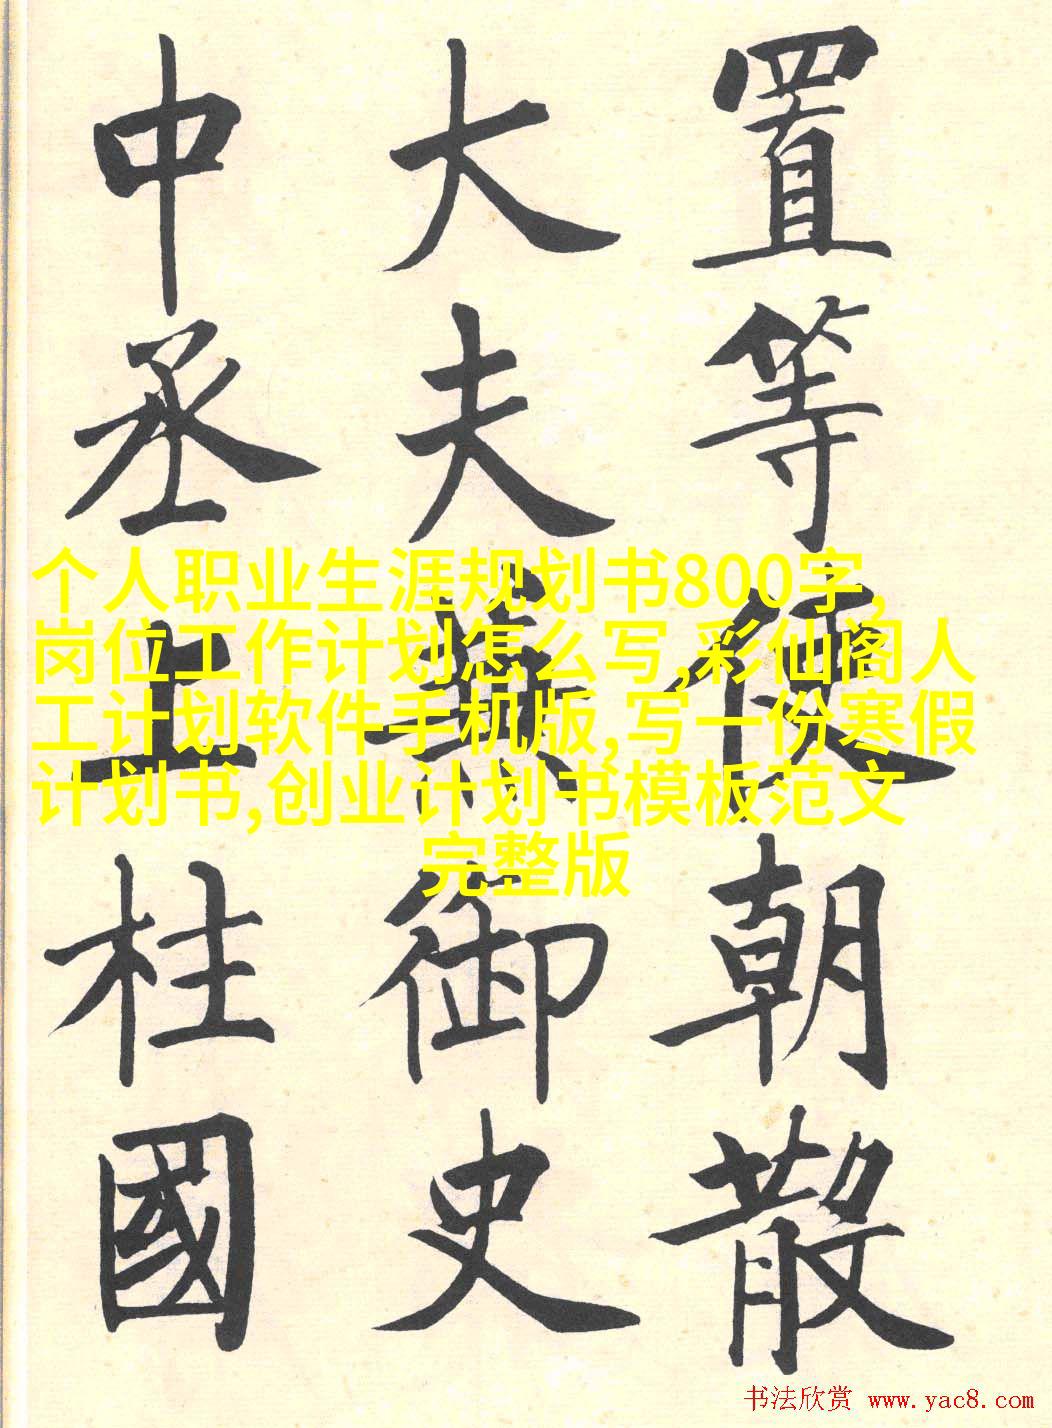 置等使朝散
大夫兼御史
中丞上柱國
个人职业生涯规划书800字,
岗位工作计划怎么写,彩仙阁人
工计划软件手机版,写一份寒假
计划书,创业计划书模板范文
完整版
书法欣赏 www.yac8.com